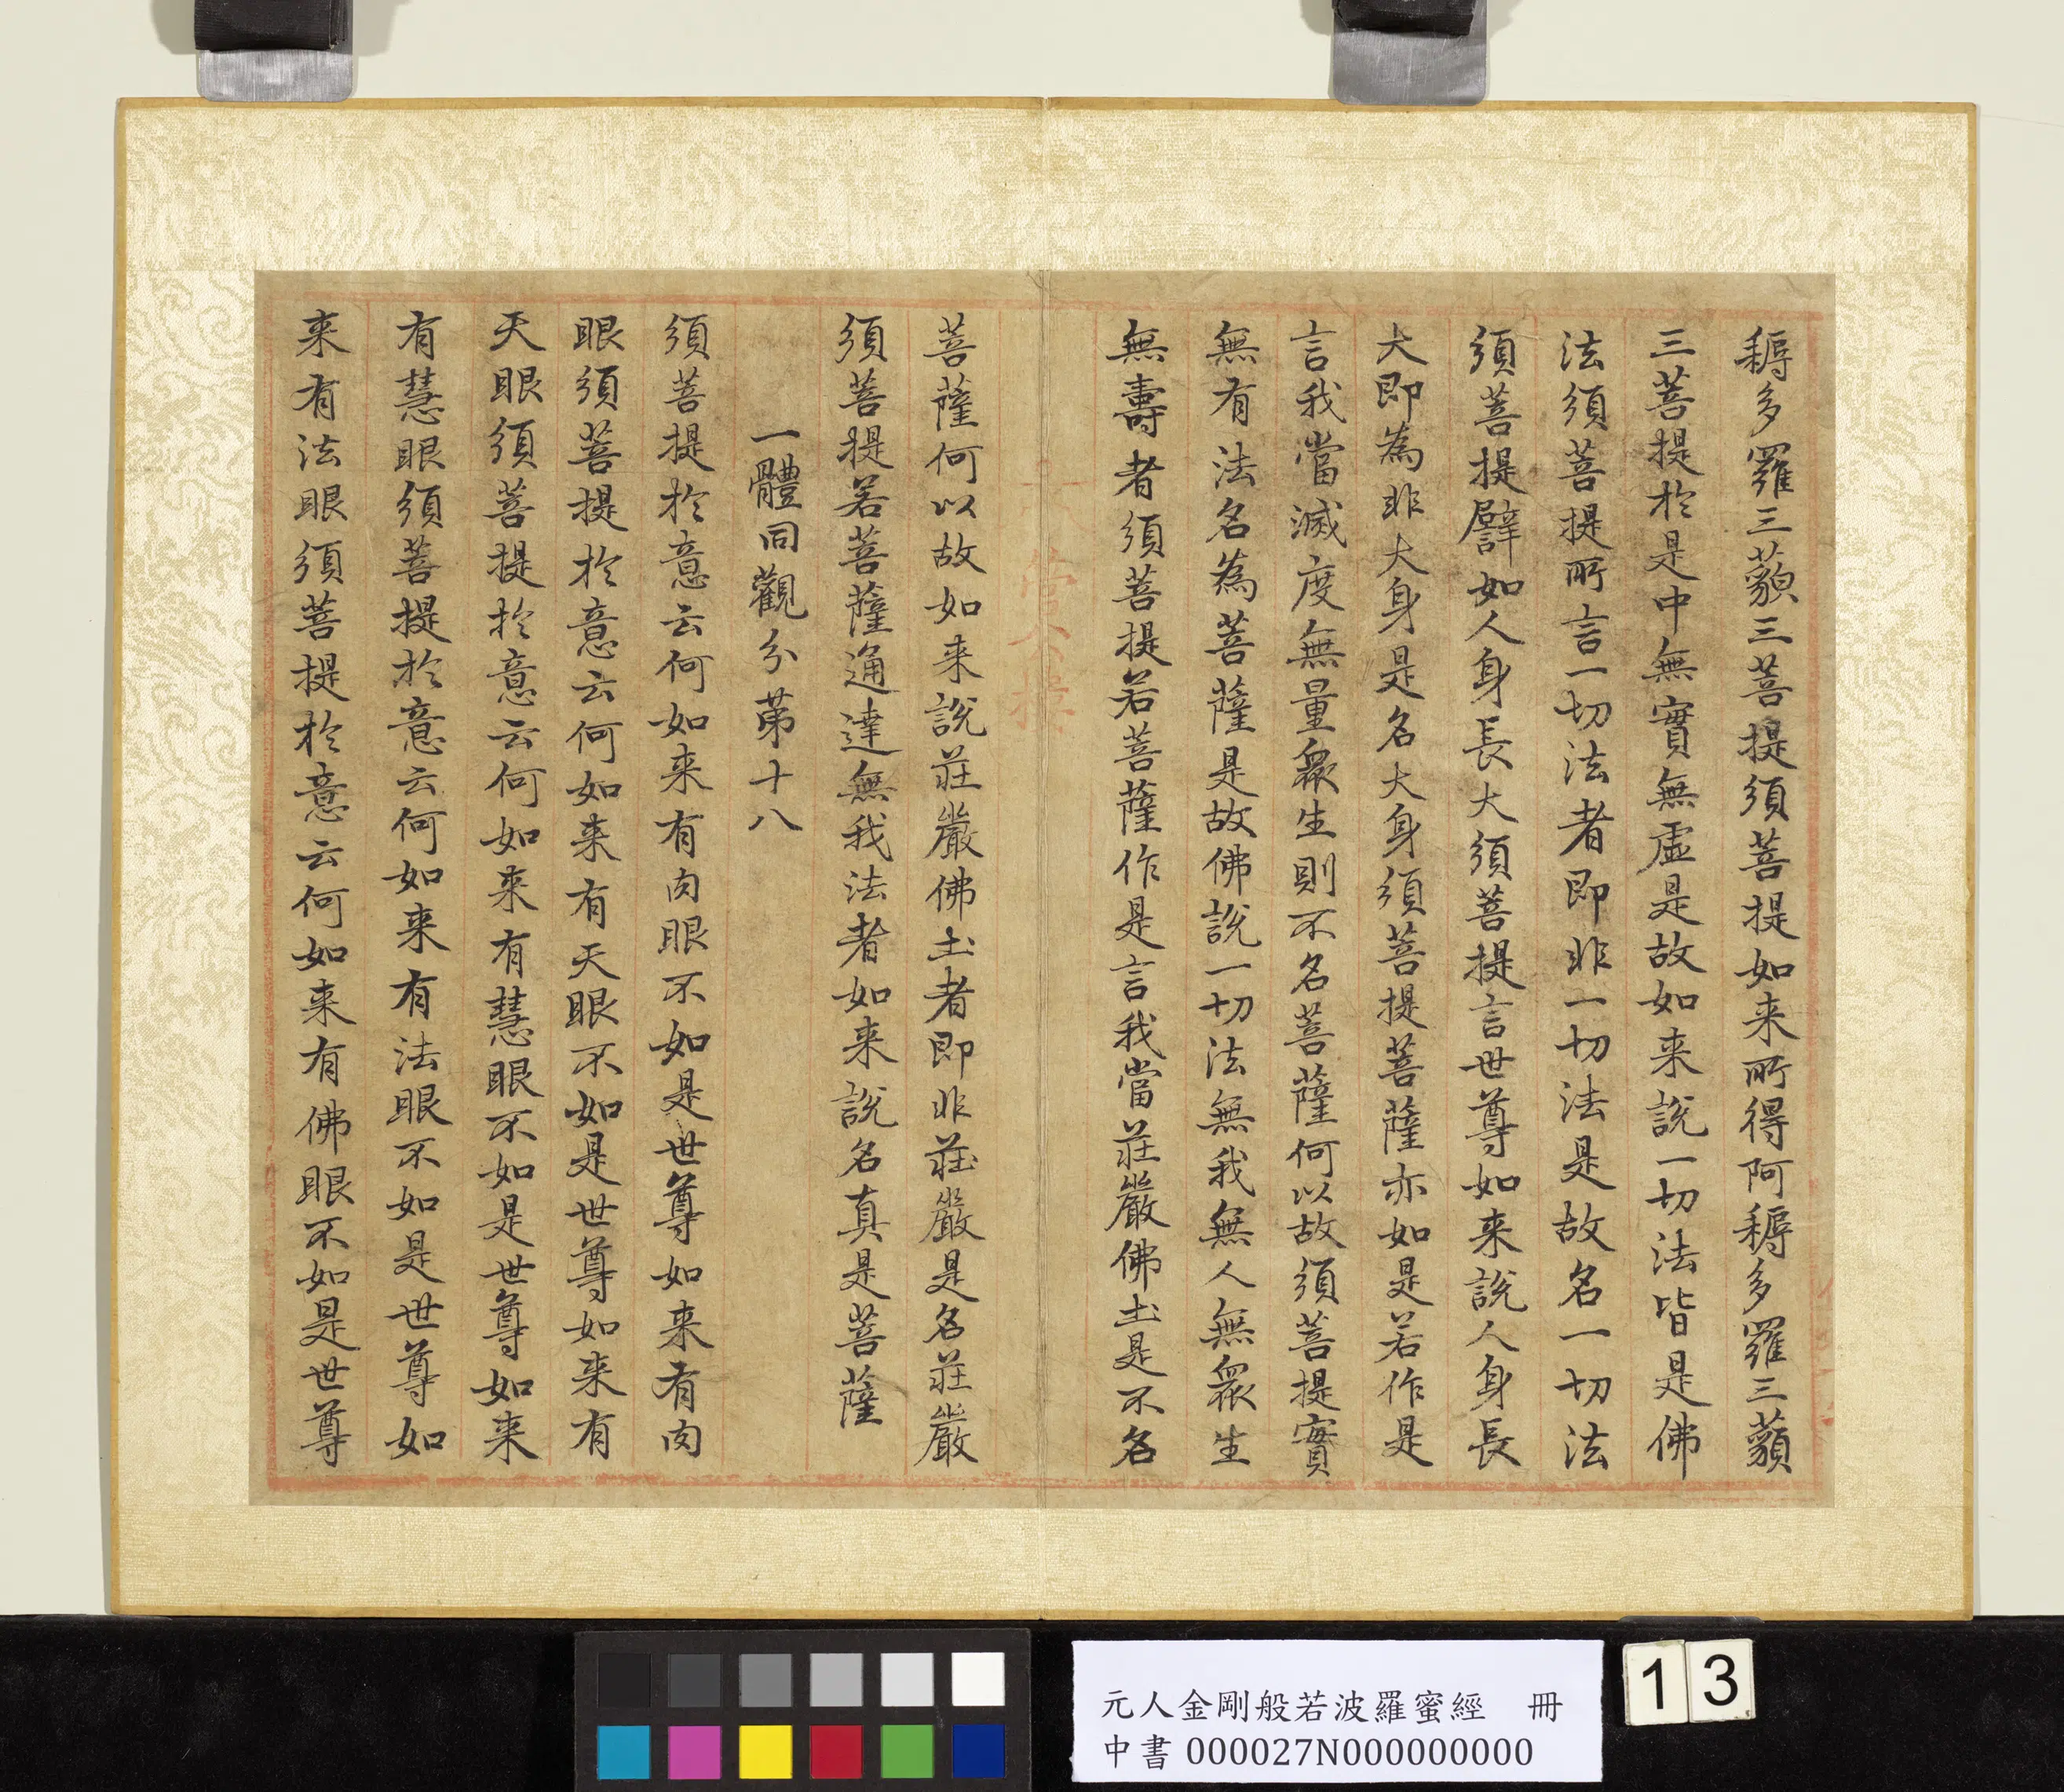 耨多羅三藐三菩提須菩提如来所得阿耨多羅三藐
三菩提於是中無實無虛是故如来說一切法皆是佛
法須菩提所言一切法者即非一切法是故名一切法
須菩提譬如人身長大須菩提言世尊如来說人身長
大即為非大身是名大身須菩提菩薩亦如是若作是
言我當滅度無量眾生則不名菩薩何以故須菩提實
無有法名為菩薩是故佛說一切法無我無人無眾生
無壽者須菩提若菩薩作是言我當莊嚴佛土是不名
菩薩何以故如来說莊嚴佛土者即非莊嚴是名莊嚴
須菩提若菩薩通達無我法者如来說名真是菩薩
一體同觀分第十八
須菩提於意云何如来有肉眼不如是世尊如来有肉
眼須菩提於意云何如来有天眼不如是世尊如来有
天眼須菩提於意云何如来有慧眼不如是世尊如来
有慧眼須菩提於意云何如来有法眼不如是世尊如
来有法眼須菩提於意云何如来有佛眼不如是世尊
元人金剛般若波羅蜜經 冊
中書 000027N000000000
13